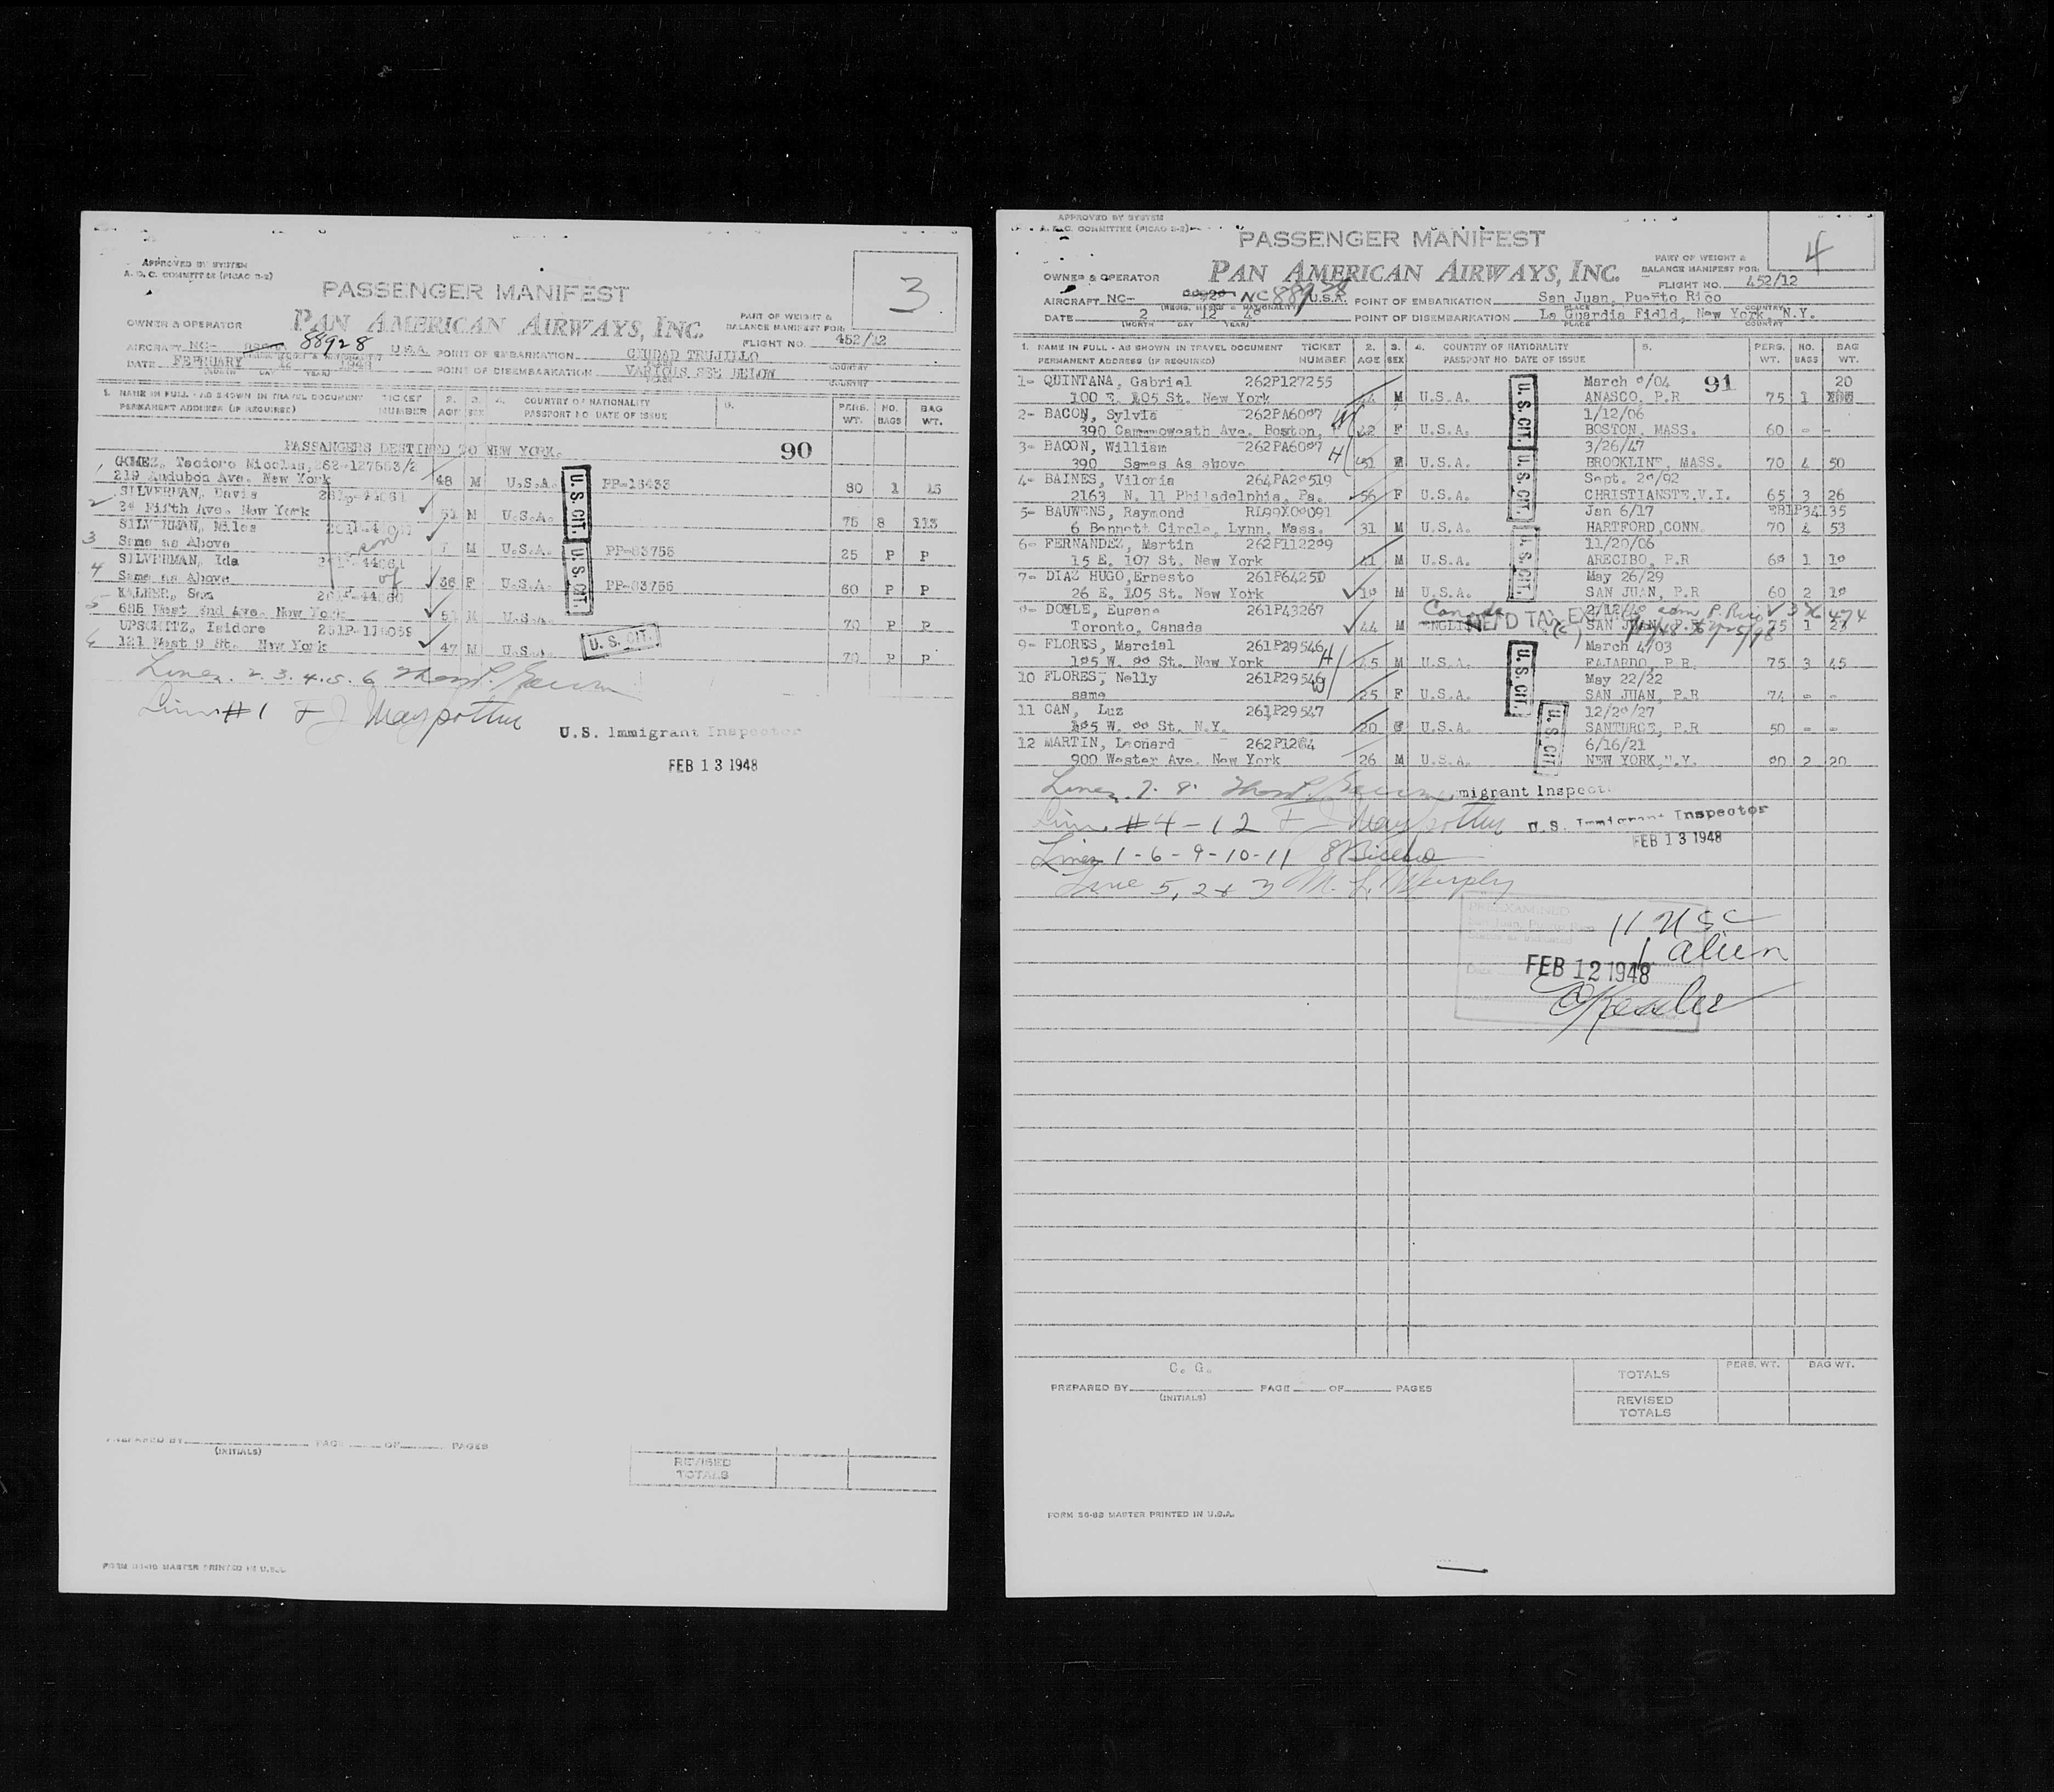 APPROVED BY SYSTEM
A. D. C. COMMITTEE (PICAO D-2)
3
PASSENGER MANIFEST
OWNER & OPERATOR PAN AMERICAN AIRWAYS, INC.
PART OF WEIGHT &
BALANCE MANIFEST FOR:
FLIGHT NO. 452/12
AIRCRAFT NC- 88928 U.S.A. POINT OF EMBARKATION CIUDAD TRUJILLO
DATE FEBRUARY 12 1948 POINT OF DISEMBARKATION VARIOUS SEE BELOW
(MONTH DAY YEAR) PLACE COUNTRY
1. NAME IN FULL - AS SHOWN IN TRAVEL DOCUMENT TICKET 2. 3. 4. COUNTRY OF NATIONALITY 5. PERS. NO. BAG
PERMANENT ADDRESS (IF REQUIRED) NUMBER AGE SEX PASSPORT NO DATE OF ISSUE WT. BAGS WT.
PASSANGERS DESTINED TO NEW YORK. 90
1 GOMEZ, Teodoro Nicolas, 262-127553/2
219 Audubon Ave. New York 48 M U.S.A. PP-16433 80 1 15
2 SILVERMAN, Davis 261P-44061
24 Fifth Ave. New York 51 M U.S.A. 75 8 113
3 SILVERMAN, Miles son
Same as Above 7 M U.S.A. PP-83755 25 P P
4 SILVERMAN, Ida 261P-44061 of
Same as Above 36 F U.S.A. PP-83755 60 P P
5 Sam 261P-44060
West End Ave. New York 51 M U.S.A. 70 P P
6 Isidore 261P-116059
121 West 9 St. New York 47 M U.S.A. 70 P P
U. S. CIT.
U. S. CIT.
U. S. CIT.
Lines. 2. 3. 4. 5. 6
Line #1
U.S. Immigrant Inspector
FEB 13 1948
PREPARED BY PAGE OF PAGES
(INITIALS)
REVISED
TOTALS
MASTER PRINTED IN U.S.A.
APPROVED BY SYSTEM
A. D. C. COMMITTEE (PICAO D-2)
4
PASSENGER MANIFEST
OWNER & OPERATOR PAN AMERICAN AIRWAYS, INC.
PART OF WEIGHT &
BALANCE MANIFEST FOR:
FLIGHT NO. 452/12
AIRCRAFT NC- NC 88928 U.S.A. POINT OF EMBARKATION San Juan, Puerto Rico
DATE 2 12 48 POINT OF DISEMBARKATION La Guardia Fidld, New York, N.Y.
(MONTH DAY YEAR) PLACE COUNTRY
1. NAME IN FULL - AS SHOWN IN TRAVEL DOCUMENT TICKET 2. 3. 4. COUNTRY OF NATIONALITY 5. PERS. NO. BAG
PERMANENT ADDRESS (IF REQUIRED) NUMBER AGE SEX PASSPORT NO. DATE OF ISSUE WT. BAGS WT.
1- QUINTANA, Gabriel 262P127255 March 8/04 91 20
100 E. 105 St. New York 44 M U.S.A. ANASCO, P.R 75 1
2- BACON, Sylvia 262PA6087 W 1/12/06
390 Commmoweath Ave. Boston, 42 F U.S.A. BOSTON, MASS. 60 - -
3- BACON, William 262PA6087 H 3/26/47
390 Sames As above 51 M U.S.A. BROOKLINE, MASS. 70 4 50
4- BAINES, Viloria 264PA28519 Sept. 28/92
2163 N. 11 Philadelphia, Pa. 56 F U.S.A. CHRISTIANSTE,V.I. 65 3 26
5- BAUWENS, Raymond Jan 6/17
6 Bennett Circle, Lynn, Mass. 31 M U.S.A. HARTFORD,CONN. 70 4 53
6- FERNANDEZ, Martin 262P112289 11/20/06
15 E. 107 St. New York 41 M U.S.A. ARECIBO, P.R 68 1 18
7- DIAZ HUGO,Ernesto 261P64250 May 26/29
26 E. 105 St. New York 18 M U.S.A. SAN JUAN, P.R 60 2 18
8- DOYLE, Eugene 261P43267 Canada HEAD TAX
Toronto, Canada 44 M ENGLISH SAN JUAN, P.R 75 1 27
9- FLORES, Marcial 261P29546 H March 4/03
185 W. 88 St. New York 45 M U.S.A. FAJARDO, P.R. 75 3 45
10 FLORES, Nelly 261P29546 W May 22/22
same 25 F U.S.A. SAN JUAN, P.R 74 - -
11 CAN, Luz 261P29547 12/28/27
185 W. 88 St. N.Y. 20 F U.S.A. SANTURCE, P.R 50 - -
12 MARTIN, Leonard 6/16/21
900 Wester Ave. New York 26 M U.S.A. NEW YORK,N.Y. 80 2 20
U. S. CIT.
U. S. CIT.
U. S. CIT.
U. S. CIT.
U. S. CIT.
Lines 7. 8. migrant Inspect
Line #4-12 U.S. Immigrant Inspector
FEB 13 1948
Lines 1-6-9-10-11
Line 5, 2 + 3 M. L. Murphy
PREEXAMINED
San Juan, Puerto Rico
11 USC
1 alien
Date FEB 12 1948
C. G.
PREPARED BY PAGE OF PAGES
(INITIALS)
PERS. WT. BAG WT.
TOTALS
REVISED
TOTALS
FORM MASTER PRINTED IN U.S.A.